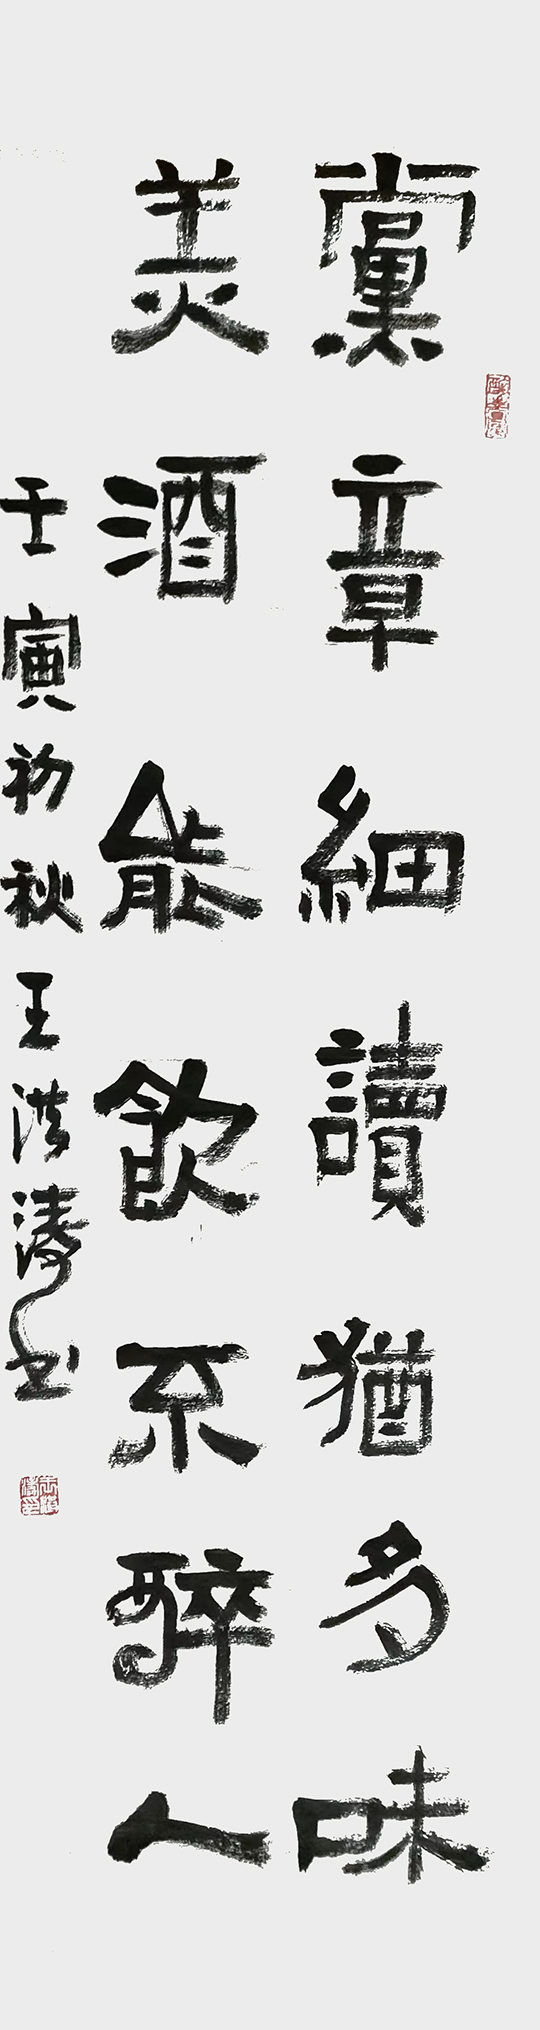 黨章細讀猶多味
美酒能飲不醉人
壬寅初秋王洪濤書